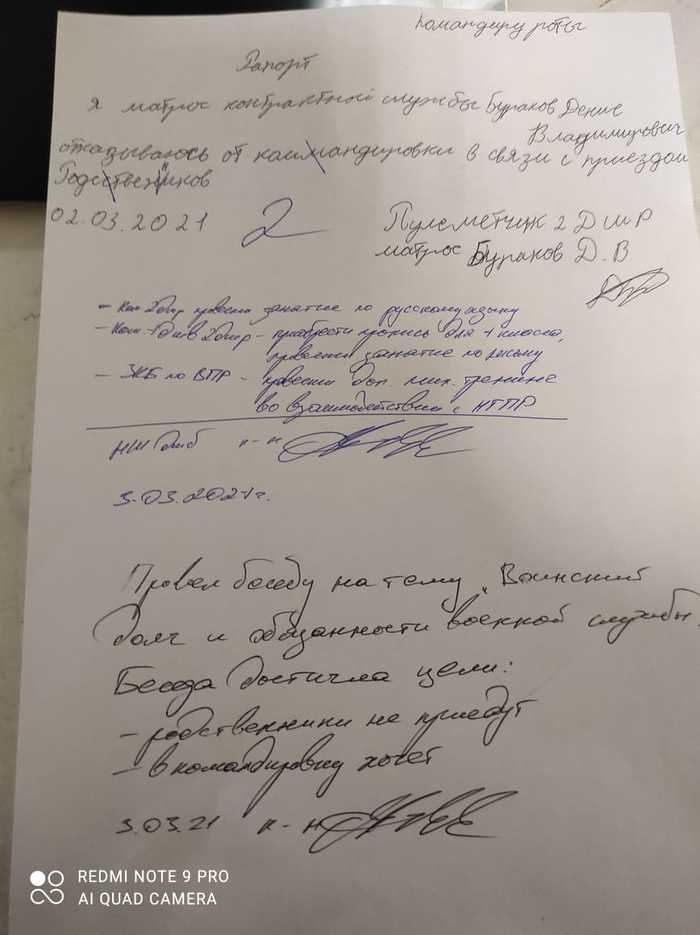 Командиру роты
Рапорт
Я матрос контрактной службы Бураков Денис
Владимирович
отказываюсь от каимандировки в связи с приездом
Годствеников
02.03.2021 2 Пулеметчик 2 ДШР
матрос Бураков Д.В
- Ком 2дшр провести занятие по русскому языку
- Ком. 1 дшв 2дшр - приобрести пропись для 1 класса,
провести занятие по письму
- ЗКБ по ВПР - провести доп. тренине
во взаимодействии с НГПР
НШ дшб п-н
3.03.2021г.
Провел беседу на тему "Воинский
долг и обязанности военной службы.
Беседа достигла цели:
- родственники не приедут
- в командировку хочет
3.03.21 п-н
REDMI NOTE 9 PRO
AI QUAD CAMERA